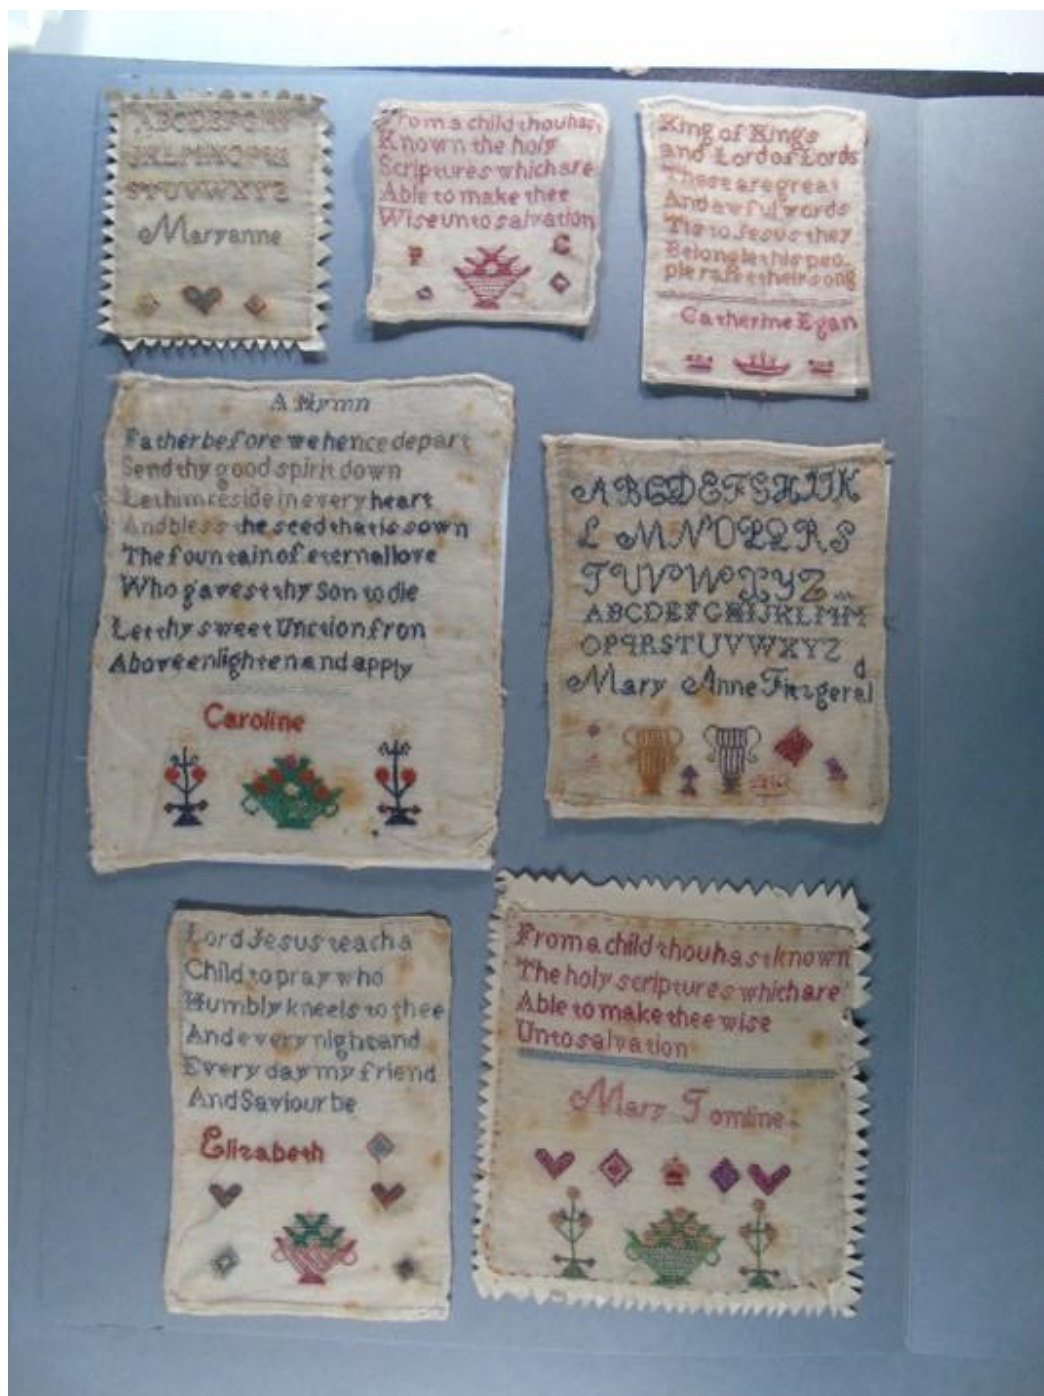 ABCDEFGHI
JKLMNOPQR
STUVWXYZ
Maryanne
From a child thou has
Known the holy
Scriptures which are
Able to make thee
Wise unto salvation
P C
King of Kings
and Lord of Lords
These are great
And awful words
Tis to Jesus they
Belong let his peo
ple raise their song
Catherine Egan
A Hymn
Father before we hence depart
Send thy good spirit down
Let him reside in every heart
And bless the seed that is sown
The fountain of eternal love
Who gavest thy Son to die
Let thy sweet Unction fron
Above enlighten and apply
Caroline
ABCDEFGHIJK
L MNOPQRS
TUVWXYZ
ABCDEFGHIJKLMN
OPQRSTUVWXYZ
d
Mary Anne Fitzgeral
Lord Jesus teach a
Child to pray who
Humbly kneels to thee
And every night and
Every day my friend
And Saviour be
Elizabeth
From a child thou hast known
The holy scriptures which are
Able to make thee wise
Unto salvation
Mary Tomline